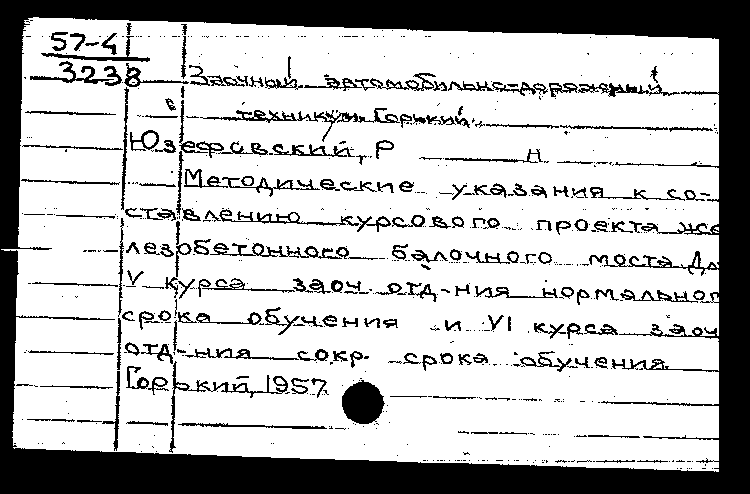 57-4
3238
Заочный автомобильно-дорожный
в
техникум. Горький.
Юзефовский, Р н
Методические указания к со-
ставлению курсового проекта же
лезобетонного балочного моста Дл
V курса заоч. отд-ния нормальног
срока обучения и VI курса заоч
отд-ния сокр. срока обучения
Горький, 1957